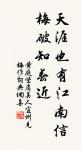 天涯也有江南信
梅破知春近
黄庭堅虞美人宜州見
梅作